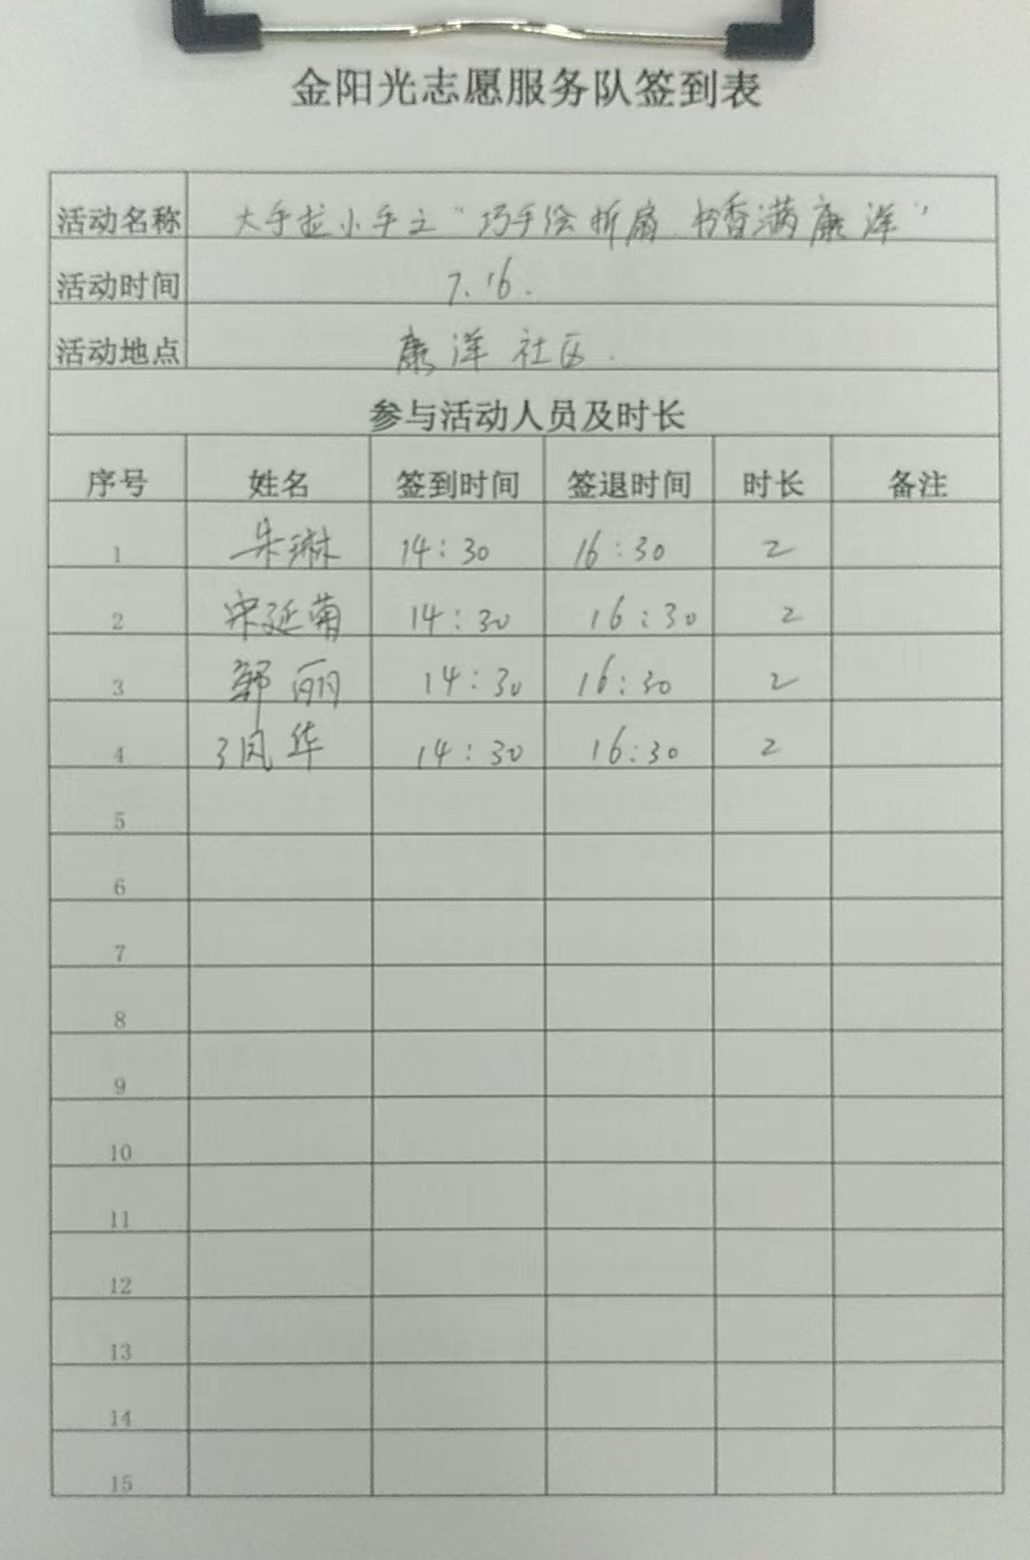 金阳光志愿服务队签到表
活动名称 大手拉小手之“巧手绘折扇.书香满康洋”
活动时间 7.16.
活动地点 康洋社区.
参与活动人员及时长
序号 姓名 签到时间 签退时间 时长 备注
1 朱琳 14:30 16:30 2
2 宋延菊 14:30 16:30 2
3 郭丽 14:30 16:30 2
4 凤华 14:30 16:30 2
5
6
7
8
9
10
11
12
13
14
15